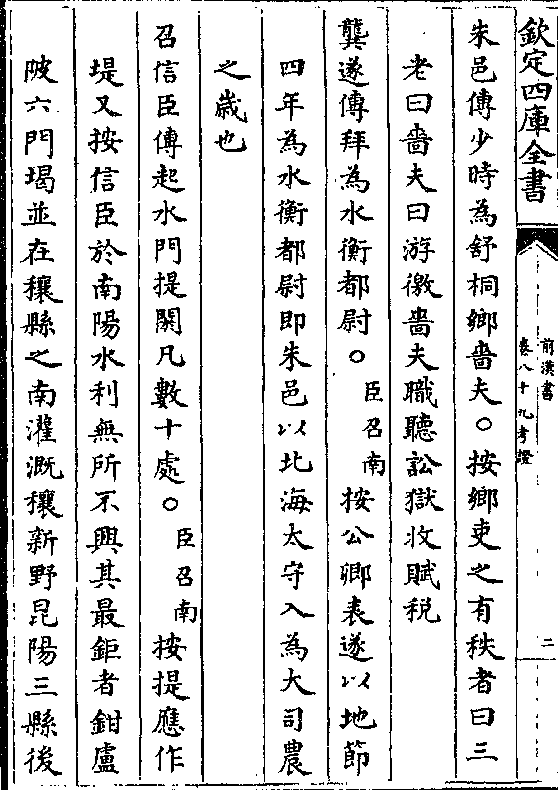 欽定四庫全書
前漢書
卷八十九考證
三
朱邑傳少時為舒桐鄉嗇夫○按鄉吏之有秩者曰三
老曰嗇夫曰游徼嗇夫職聽訟獄收賦稅
龔遂傳拜為水衡都尉○臣召南按公卿表遂以地節
四年為水衡都尉即朱邑以北海太守入為大司農
之嵗也
召信臣傳起水門提閼凡數十處○臣召南按提應作
堤又按信臣於南陽水利無所不興其最鉅者鉗盧
陂六門堨並在穰縣之南灌溉穰新野昆陽三縣後